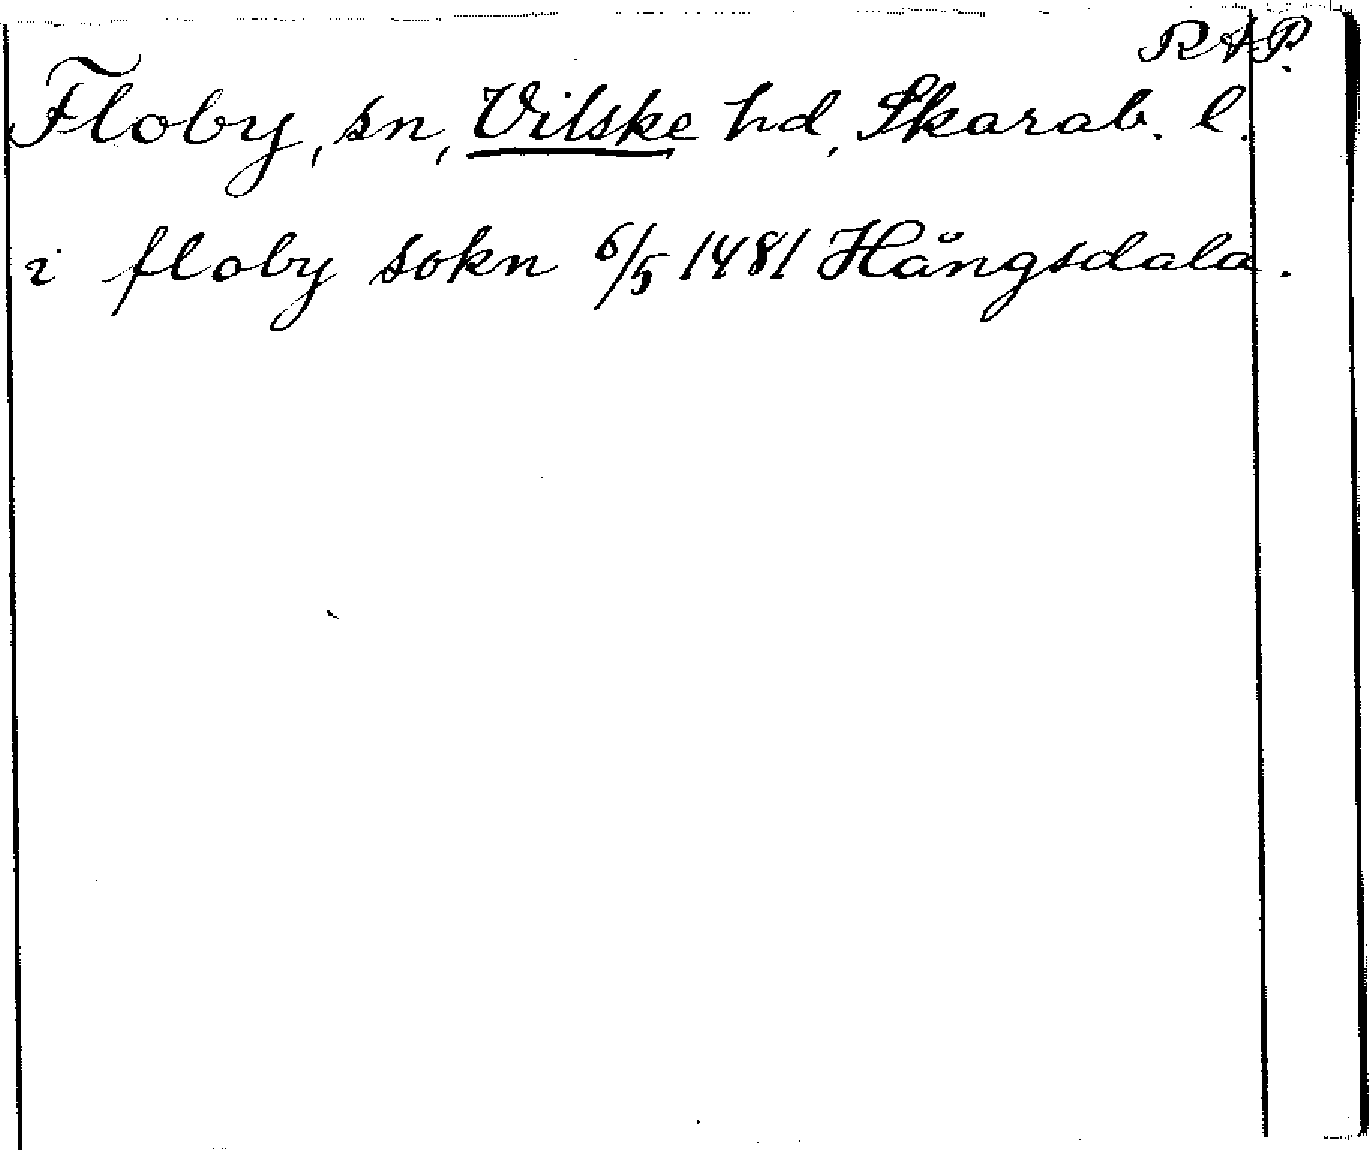 RAP.
Floby, sn, Vilske hd, Skarab. l.
i floby sokn 6/5 1481 Hångsdala.